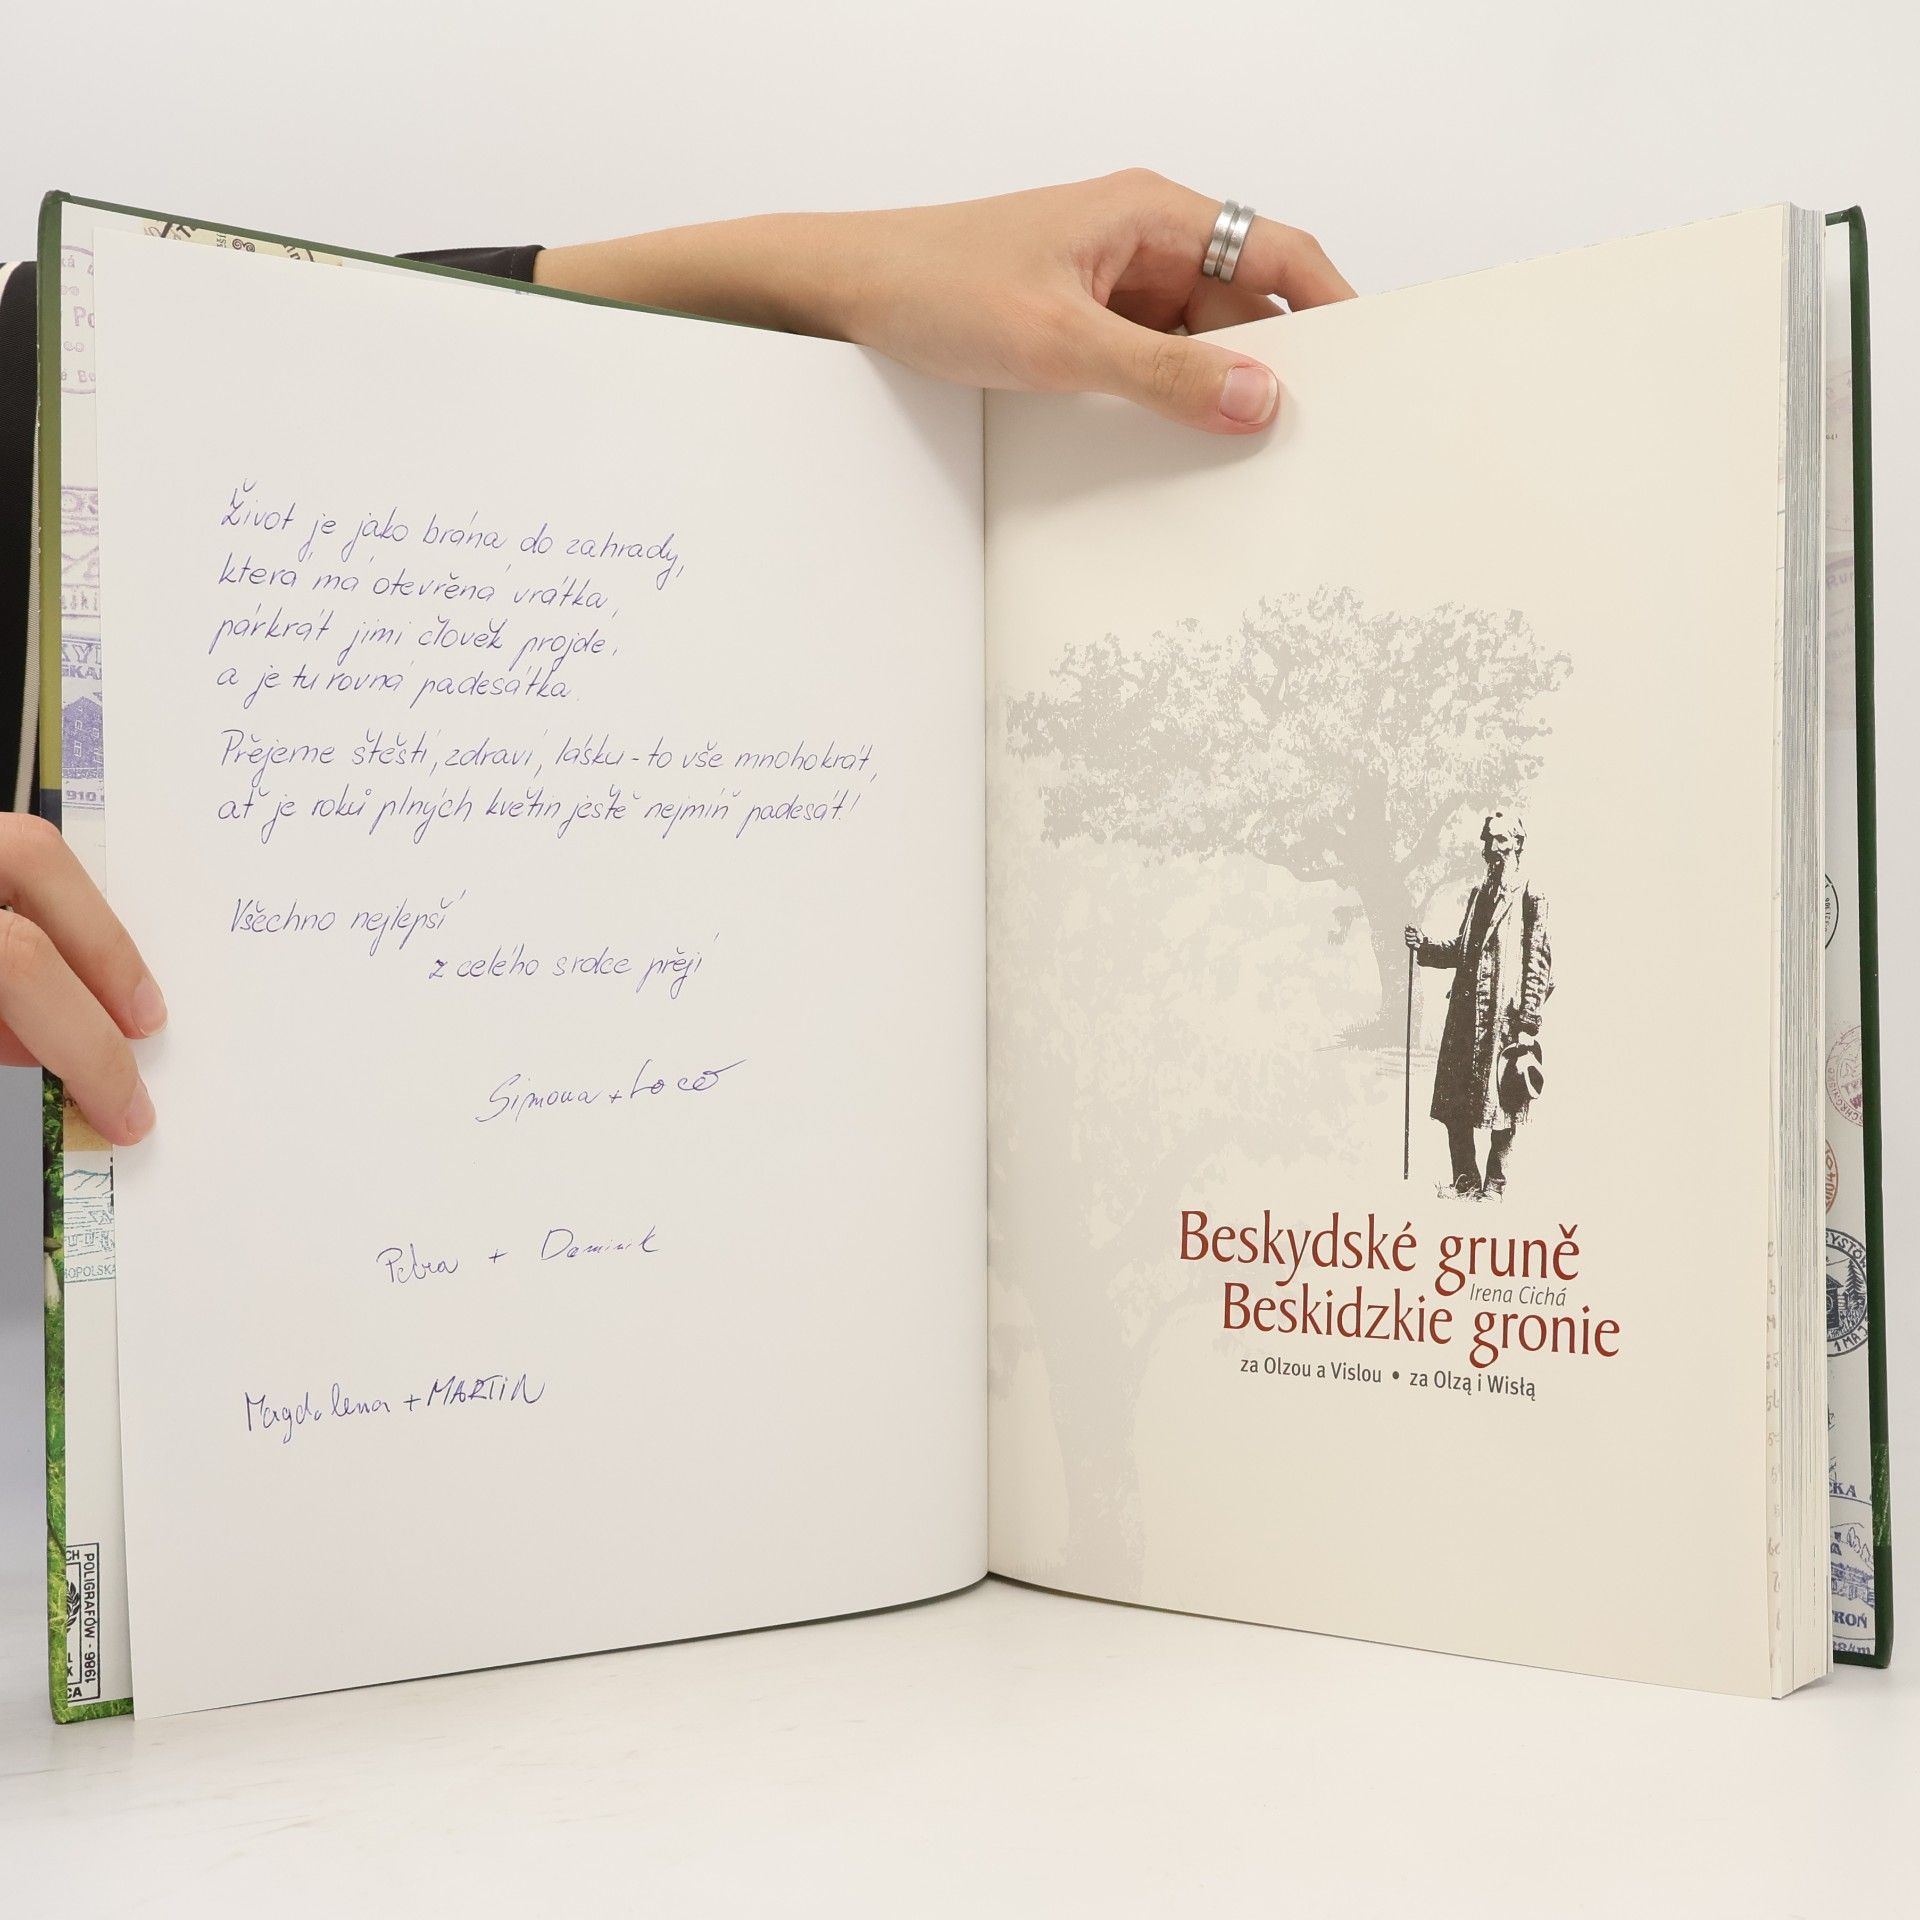 Život je jako brána do zahrady,
která má otevřená vrátka,
párkrát jimi člověk projde,
a je tu rovná padesátka.
Přejeme štěstí, zdraví, lásku - to vše mnohokrát,
ať je roků plných květin ještě nejmíň padesát!
Všechno nejlepší
z celého srdce přejí
Simona +
Petra + Dominik
Magdalena + MARTIN
Beskydské gruně
Irena Cichá
Beskidzkie gronie
za Olzou a Vislou • za Olzą i Wisłą
POLIGRAFÓW - 1986